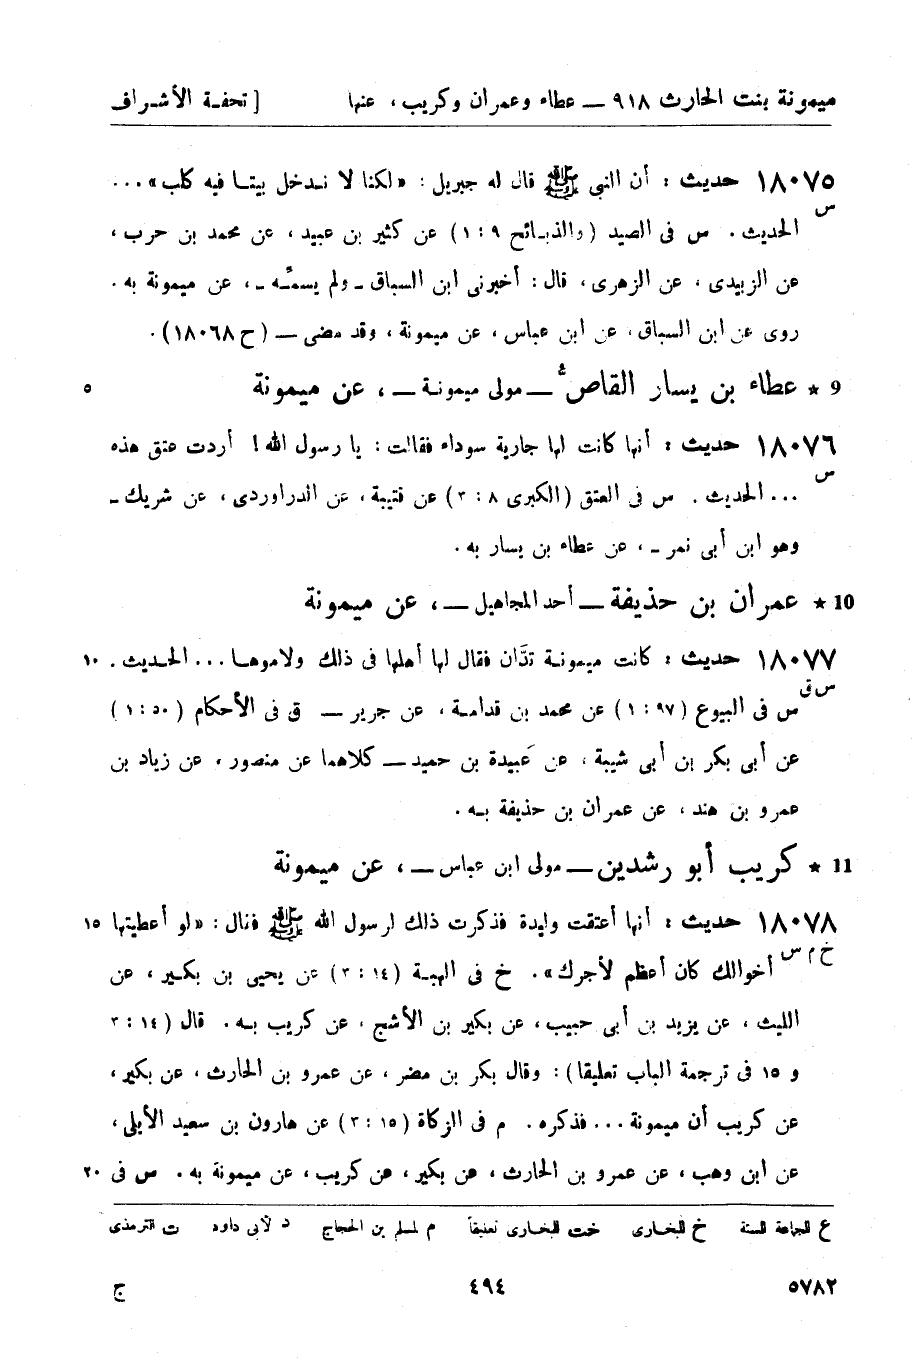 ميمونة بنت الحارث ٩١٨ — عطاء وعمران وكريب ، عنها [ تحفة الأشراف
١٨٠٧٥ حديث : أن النبى ﷺ قال له جبريل : «لكنا لا نـدخل بيتـا فيه كلب» ...
س
الحديث . س فى الصيد (والذبـائح ٩ : ١) عن كثير بن عبيد ، عن محمد بن حرب ،
عن الزبيدى ، عن الزهرى ، قال : أخبرنى ابن السباق ـ ولم يسمّـه ـ ، عن ميمونة به .
روى عن ابن السباق ، عن ابن عباس ، عن ميمونة ، وقد مضى — (ح ١٨٠٦٨) .
9 ★ عطاء بن يسار القاصّ — مولى ميمونـة — ، عن ميمونة ٥
١٨٠٧٦ حديث : أنها كانت لها جارية سوداء فقالت : يا رسول الله ! أردت عتق هذه
س
... الحديث . س فى العتق (الكبرى ٨ : ٣) عن قتيبة ، عن الدراوردى ، عن شريك ـ
وهو ابن أبى نمر ـ ، عن عطاء بن يسار به .
10 ★ عمران بن حذيفة — أحد المجاهيل — ، عن ميمونة
١٨٠٧٧ حديث : كانت ميمونـة تدَّان فقال لها أهلها فى ذلك ولاموهـا ... الحـديث . ١٠
س ق
س فى البيوع (٩٧ : ١) عن محمد بن قدامـة ، عن جرير — ق فى الأحكام (٥٠ : ١)
عن أبى بكر بن أبى شيبة ، عن عَبيدة بن حميد — كلاهما عن منصور ، عن زياد بن
عمرو بن هند ، عن عمران بن حذيفة بـه .
11 ★ كريب أبو رشدين — مولى ابن عباس — ، عن ميمونة
١٨٠٧٨ حديث : أنها أعتقت وليدة فذكرت ذلك لرسول الله ﷺ فقال : «لو أعطيتها ١٥
خ م س
أخوالك كان أعظم لأجرك» . خ فى الهبـة (١٤ : ٣) عن يحيى بن بكـير ، عن
الليث ، عن يزيد بن أبى حبيب ، عن بكير بن الأشج ، عن كريب بـه . قال (١٤ : ٣
و ١٥ فى ترجمة الباب تعليقا) : وقال بكر بن مضر ، عن عمرو بن الحارث ، عن بكير ،
عن كريب أن ميمونة ... فذكره . م فى الزكاة (١٥ : ٣) عن هارون بن سعيد الأيلى ،
عن ابن وهب ، عن عمرو بن الحارث ، عن بكير ، عن كريب ، عن ميمونة به . س فى ٢٠
ع للجماعة الستة خ للبخـارى خت للبخـارى تعليقاً م لمسلم بن الحجاج د لأبى داود ت للترمذى
٥٧٨٢ ٤٩٤ ج